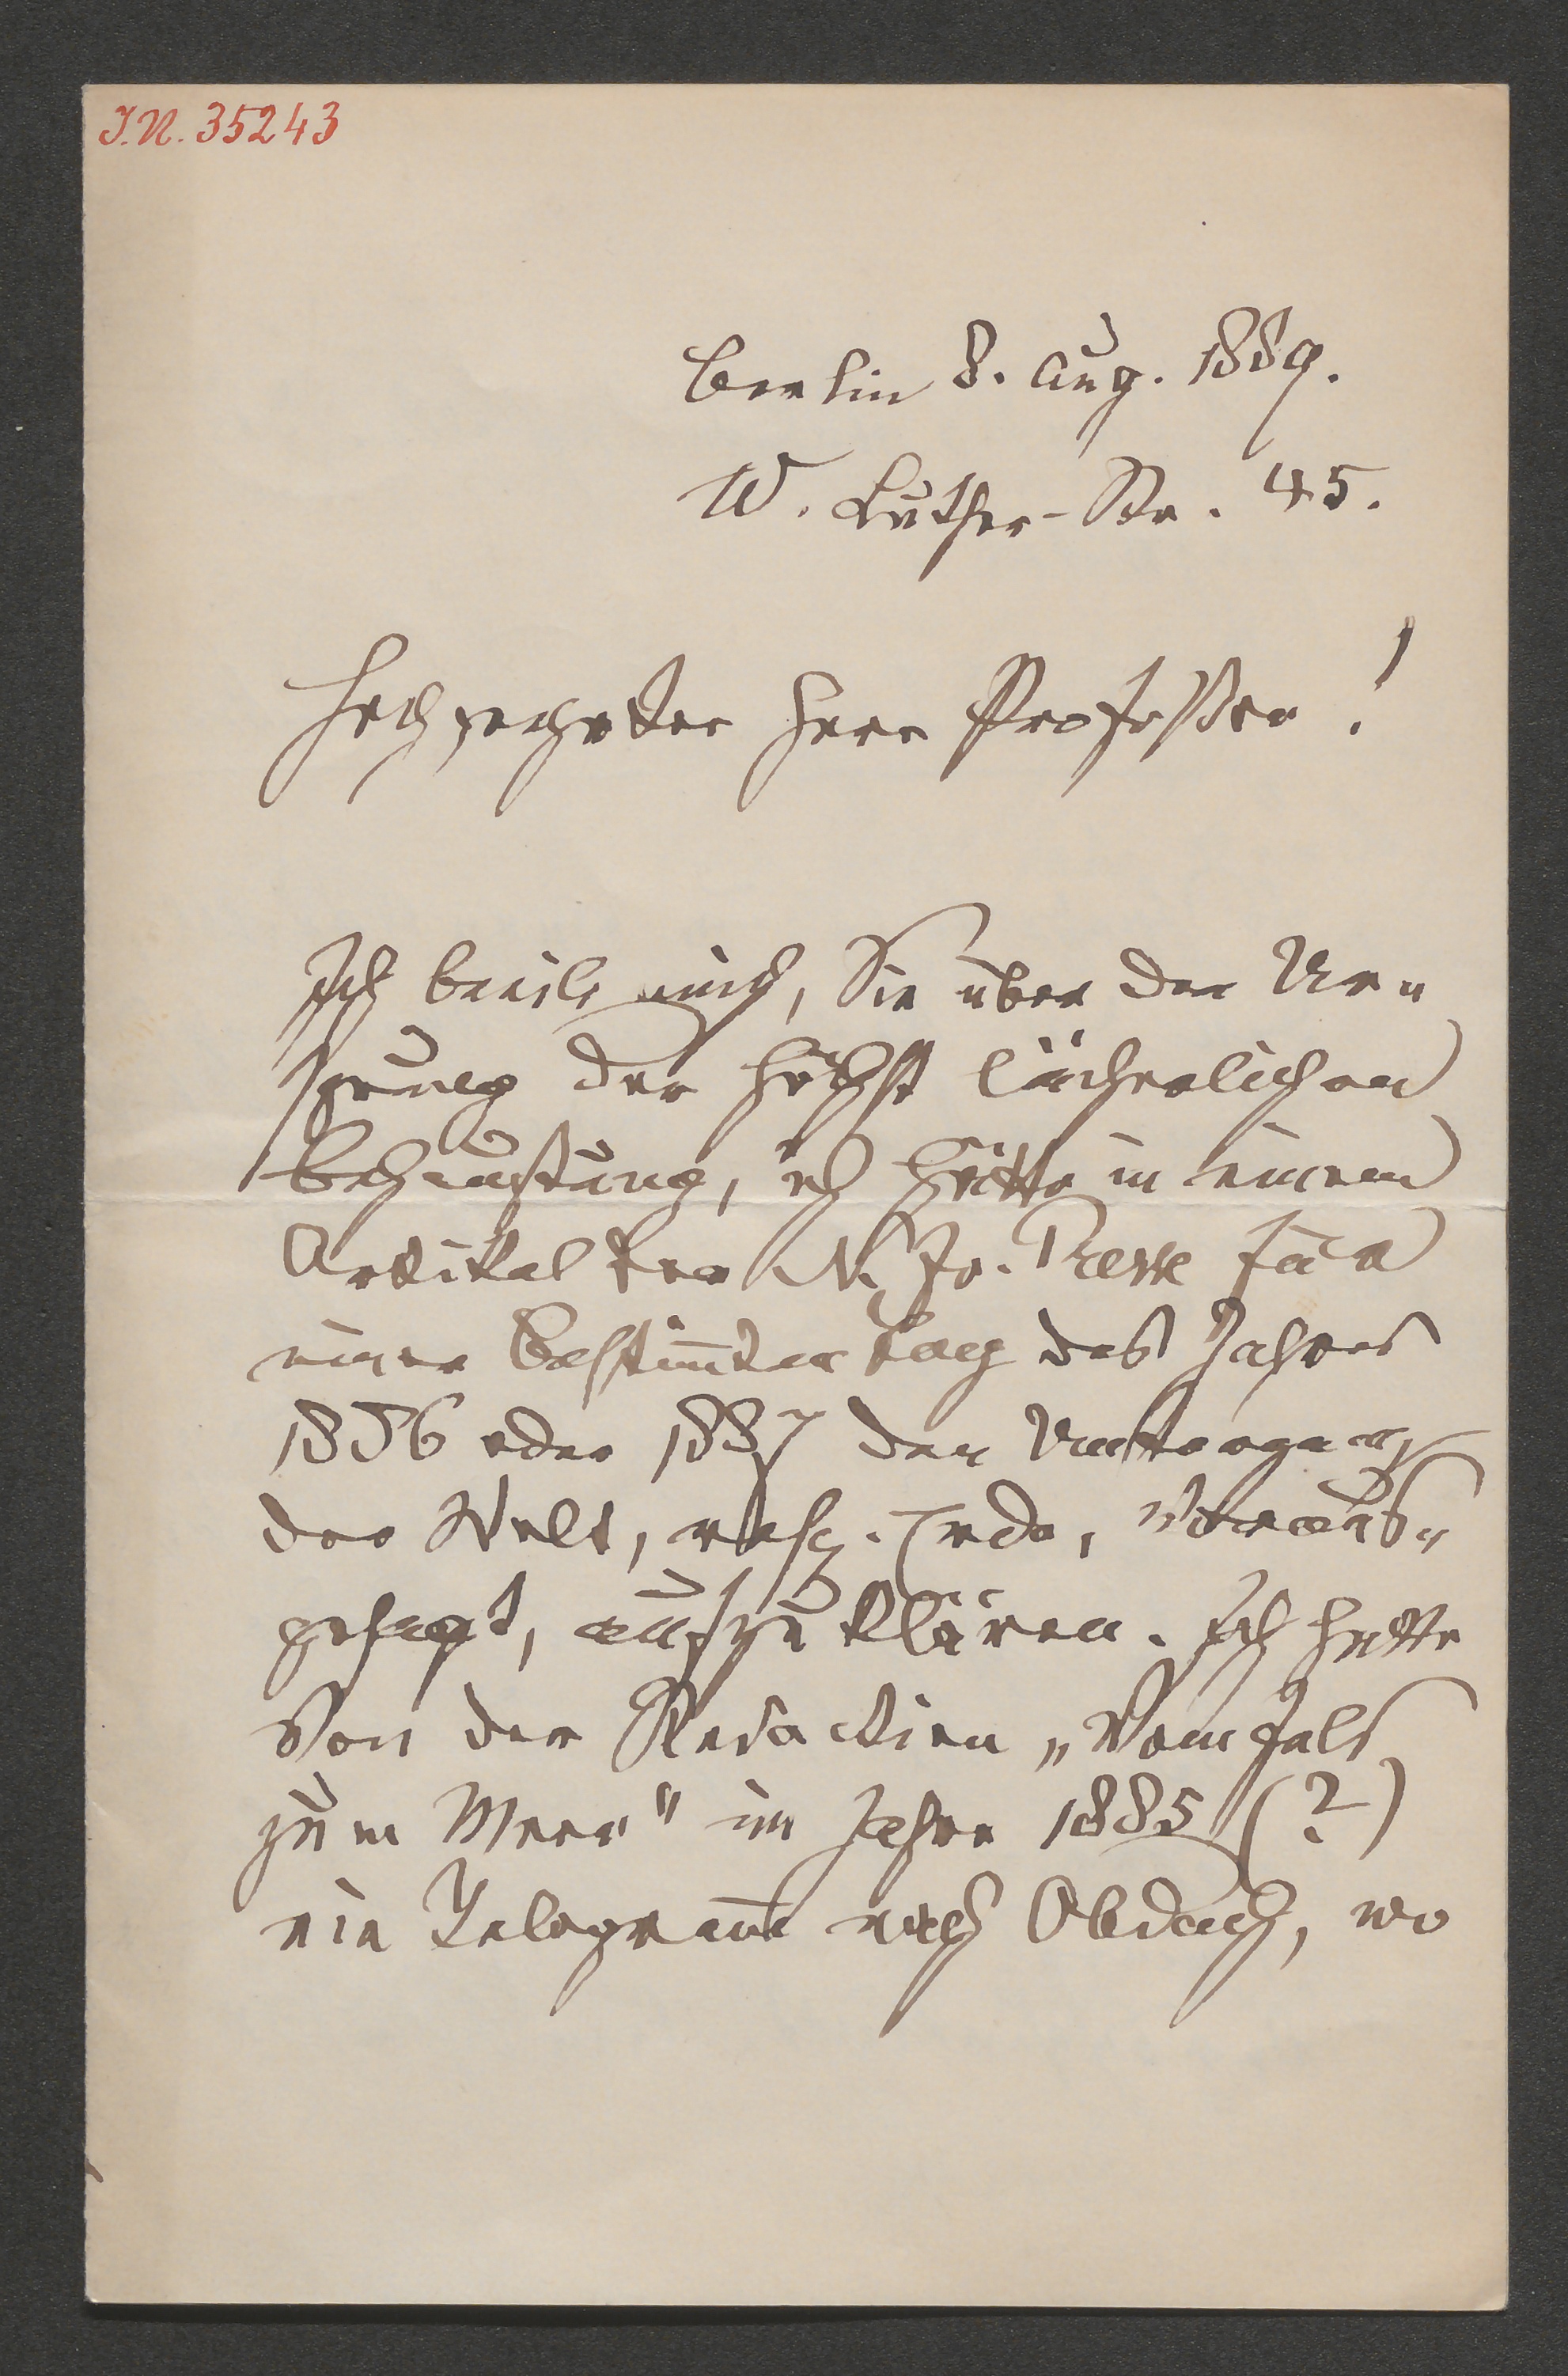 I.N. 35243
Berlin 8. Aug. 1889.
W. Luther-Str. 45.
Hochgeehrter Herr Professor!
Ich beeile mich, Sie über den Ur-
sprung der höchst lächerlichen
Behauptung, ich hätte in einem
Artikel der N. Fr. Presse für
einen bestim̅ten Tag des Jahres
1886 oder 1887 den Untergang
der Welt, resp. Erde, voraus-
gesagt, aufzuklären. Ich hatte
von der Redaction „Vom Fels
zum Meer" im Jahre 1885 (?)
ein Telegram̅ nach Obdach, wo